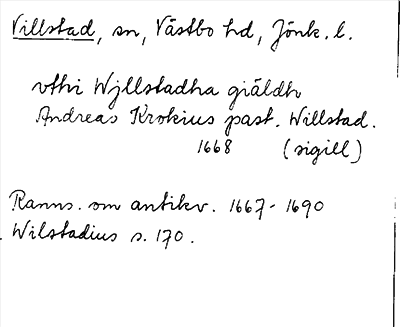 Villstad, sn, Västbo hd, Jönk. l.
vthi Wjllstadha giäldh
Andreas Krokius past. Willstad.
1668 (sigill)
Ranns. om antikv. 1667-1690
Wilstadius s. 170.